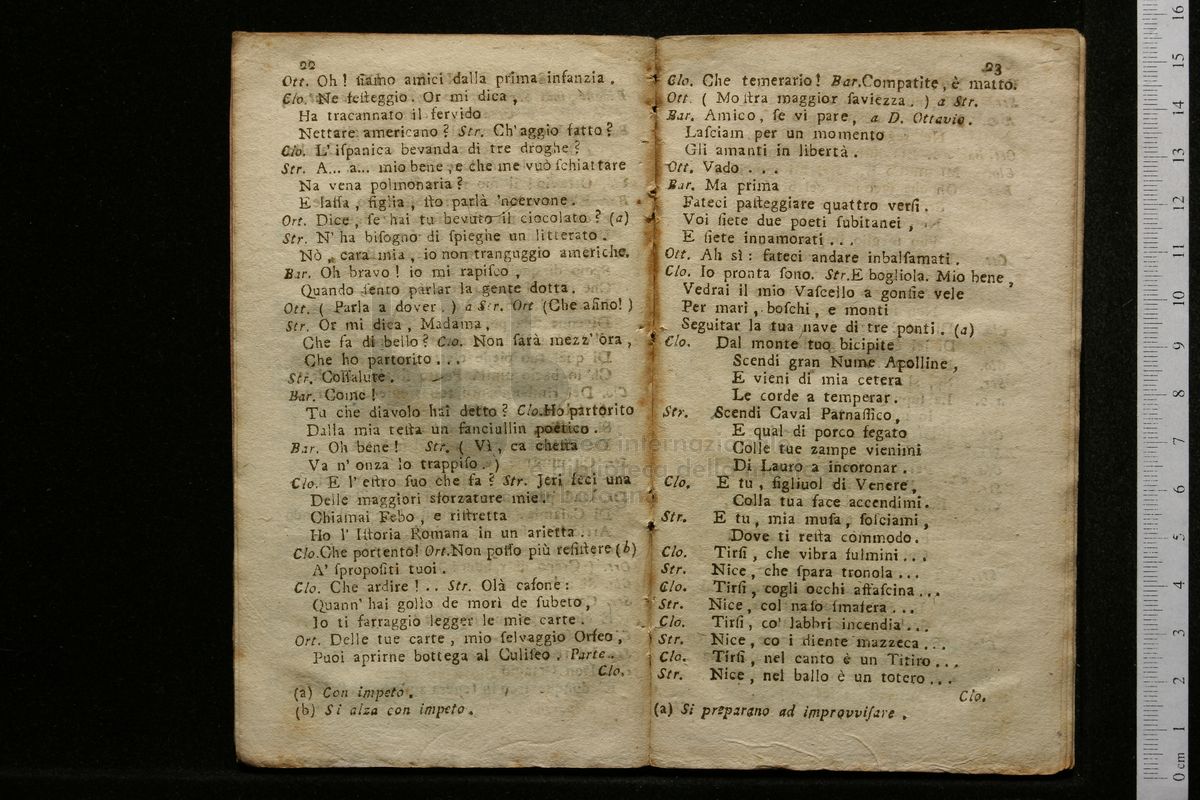 22
Ott. Oh! ſiamo amici dalla prima infanzia.
Clo. Ne feſteggio. Or mi dica,
Ha tracannato il fervido
Nettare americano? Str. Ch'aggio fatto?
Clo. L'iſpanica bevanda di tre droghe?
Str. A... a... mio bene, e che me vuò ſchiattare
Na vena polmonaria?
E laſſa, figlia, ſto parlà 'ncervone.
Ort. Dice, ſe hai tu bevuto il ciocolato? (a)
Str. N'ha biſogno di ſpieghe un litterato.
Nò, cara mia, io non tranguggio americhe.
Bar. Oh bravo! io mi rapiſco,
Quando ſento parlar la gente dotta.
Ott. (Parla a dover.) a Str. Ort. (Che aſino!)
Str. Or mi dica, Madama,
Che fa di bello? Clo. Non farà mezz'ora,
Che ho partorito...
Str. Coſſalute.
Bar. Come!
Tu che diavolo hai detto? Clo. Ho partorito
Dalla mia teſta un fanciullin poetico.
Bar. Oh bene! Str. (Vì, ca cheſta
Va n'onza lo trappiſo.)
Clo. E l'eſtro ſuo che fa? Str. Jeri feci una
Delle maggiori sforzature mie.
Chiamai Febo, e riſtretta
Ho l'Iſtoria Romana in un arietta.
Clo. Che portento! Ort. Non poſſo più reſiſtere (b)
A' ſpropoſiti tuoi.
Clo. Che ardire!.. Str. Olà caſone:
Quann'hai golìo de morì de ſubeto,
Io ti farraggio legger le mie carte.
Ort. Delle tue carte, mio ſelvaggio Orfeo,
Puoi aprirne bottega al Culiſeo. Parte.
Clo.
(a) Con impeto.
(b) Si alza con impeto.
23
Clo. Che temerario! Bar. Compatite, è matto.
Ott. (Moſtra maggior ſaviezza.) a Str.
Bar. Amico, ſe vi pare, a D. Ottavio.
Laſciam per un momento
Gli amanti in libertà.
Ott. Vado...
Bar. Ma prima
Fateci paſteggiare quattro verſi.
Voi ſiete due poeti ſubitanei,
E ſiete innamorati...
Ott. Ah sì: fateci andare inbalſamati.
Clo. Io pronta ſono. Str. E bogliola. Mio bene,
Vedrai il mio Vaſcello a gonfie vele
Per mari, boſchi, e monti
Seguitar la tua nave di tre ponti. (a)
Clo. Dal monte tuo bicipite
Scendi gran Nume Apolline,
E vieni di mia cetera
Le corde a temperar.
Str. Scendi Caval Parnaſſico,
E qual di porco fegato
Colle tue zampe vienimi
Di Lauro a incoronar.
Clo. E tu, figliuol di Venere,
Colla tua face accendimi.
Str. E tu, mia muſa, ſoſciami,
Dove ti reſta commodo.
Clo. Tirſi, che vibra fulmini...
Str. Nice, che ſpara tronola...
Clo. Tirſi, cogli occhi affaſcina...
Str. Nice, col naſo ſmafera...
Clo. Tirſi, co' labbri incendia...
Str. Nice, co i diente mazzeca...
Clo. Tirſi, nel canto è un Titiro...
Str. Nice, nel ballo è un totero...
Clo.
(a) Si preparano ad improvviſare.